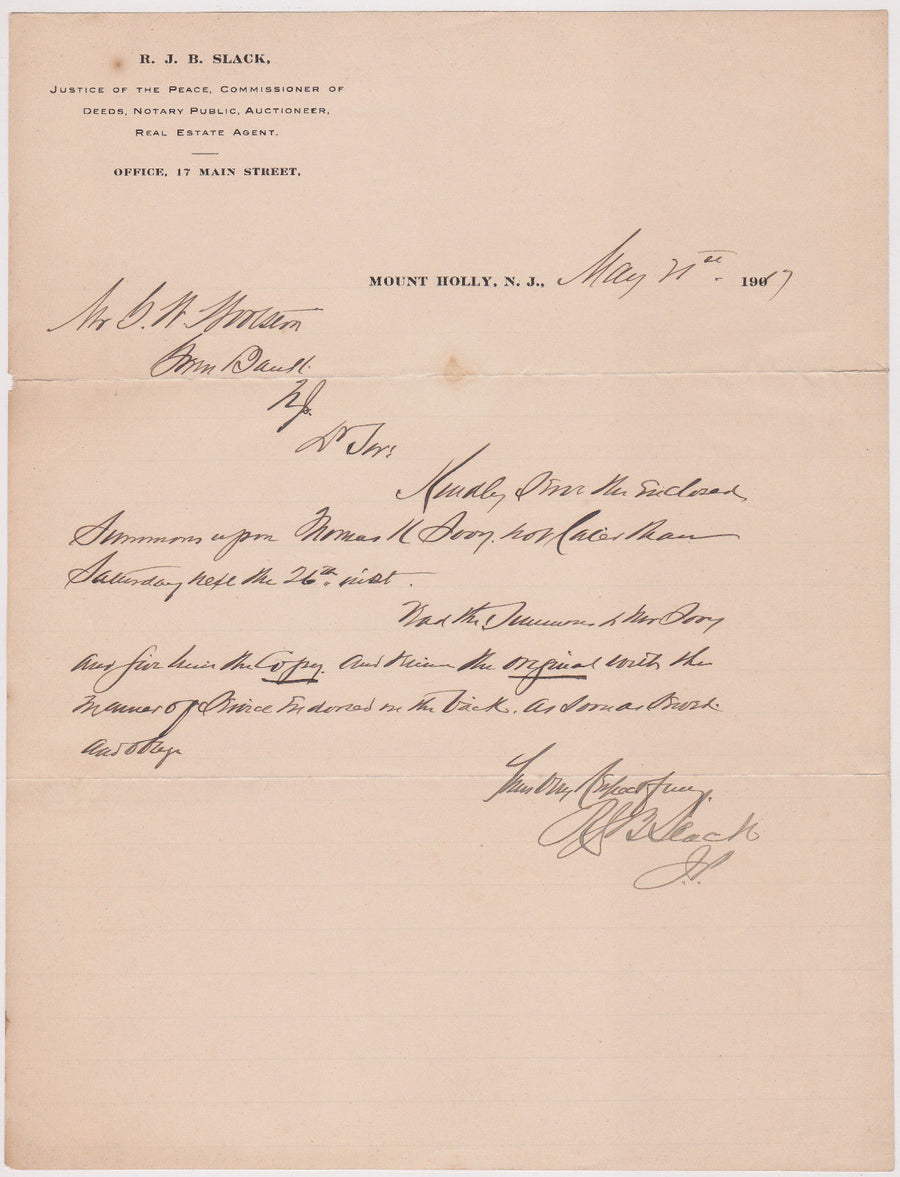 R. J. B. SLACK,
JUSTICE OF THE PEACE, COMMISSIONER OF
DEEDS, NOTARY PUBLIC, AUCTIONEER,
REAL ESTATE AGENT.
OFFICE, 17 MAIN STREET,
MOUNT HOLLY, N. J., May 21st. 1917
Mr C. W. Woolston
NJ.
Dr Sir:
Kindly Serve the Enclosed
Summons upon Thomas K Ivory. not later than
Saturday next the 26th. inst.
Read the Summons to Mr Ivory
and give him the Copy. and return the original with the
manner of Service Endorsed on the back. as soon as Served.
and oblige
Yours Very Respectfully.
RJB Slack
J.P.